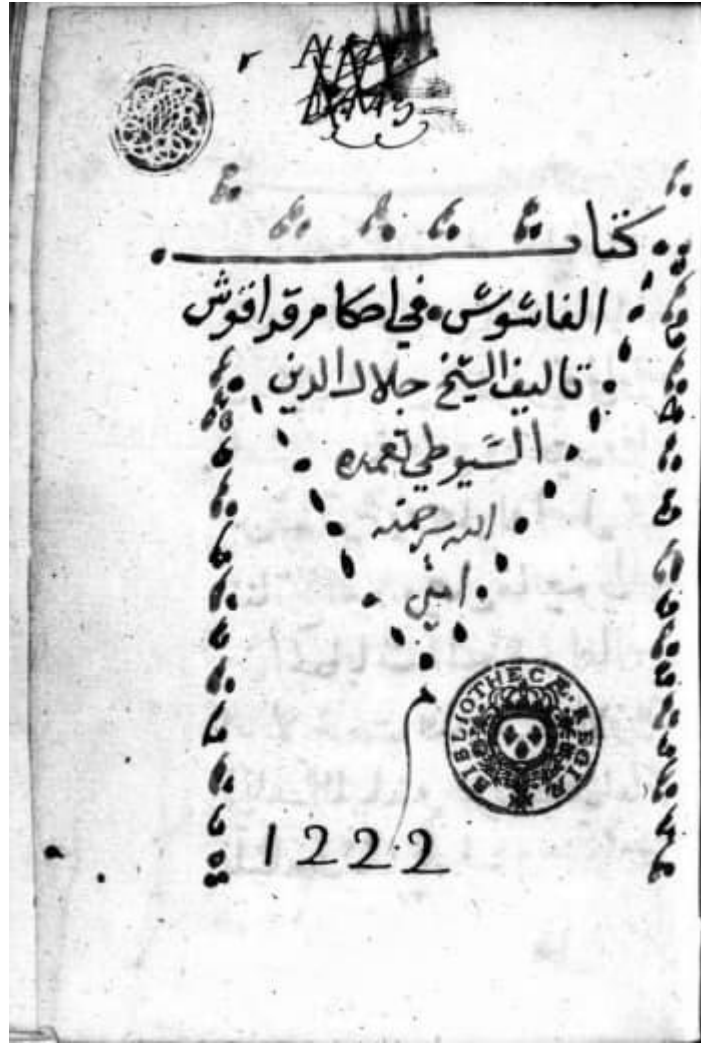 كتاب
الفاشوش في احكام قراقوش
تاليف الشيخ جلال الدين
السيوطي تغمده
الله برحمته
امين
BIBLIOTHECÆ REGIÆ
1222